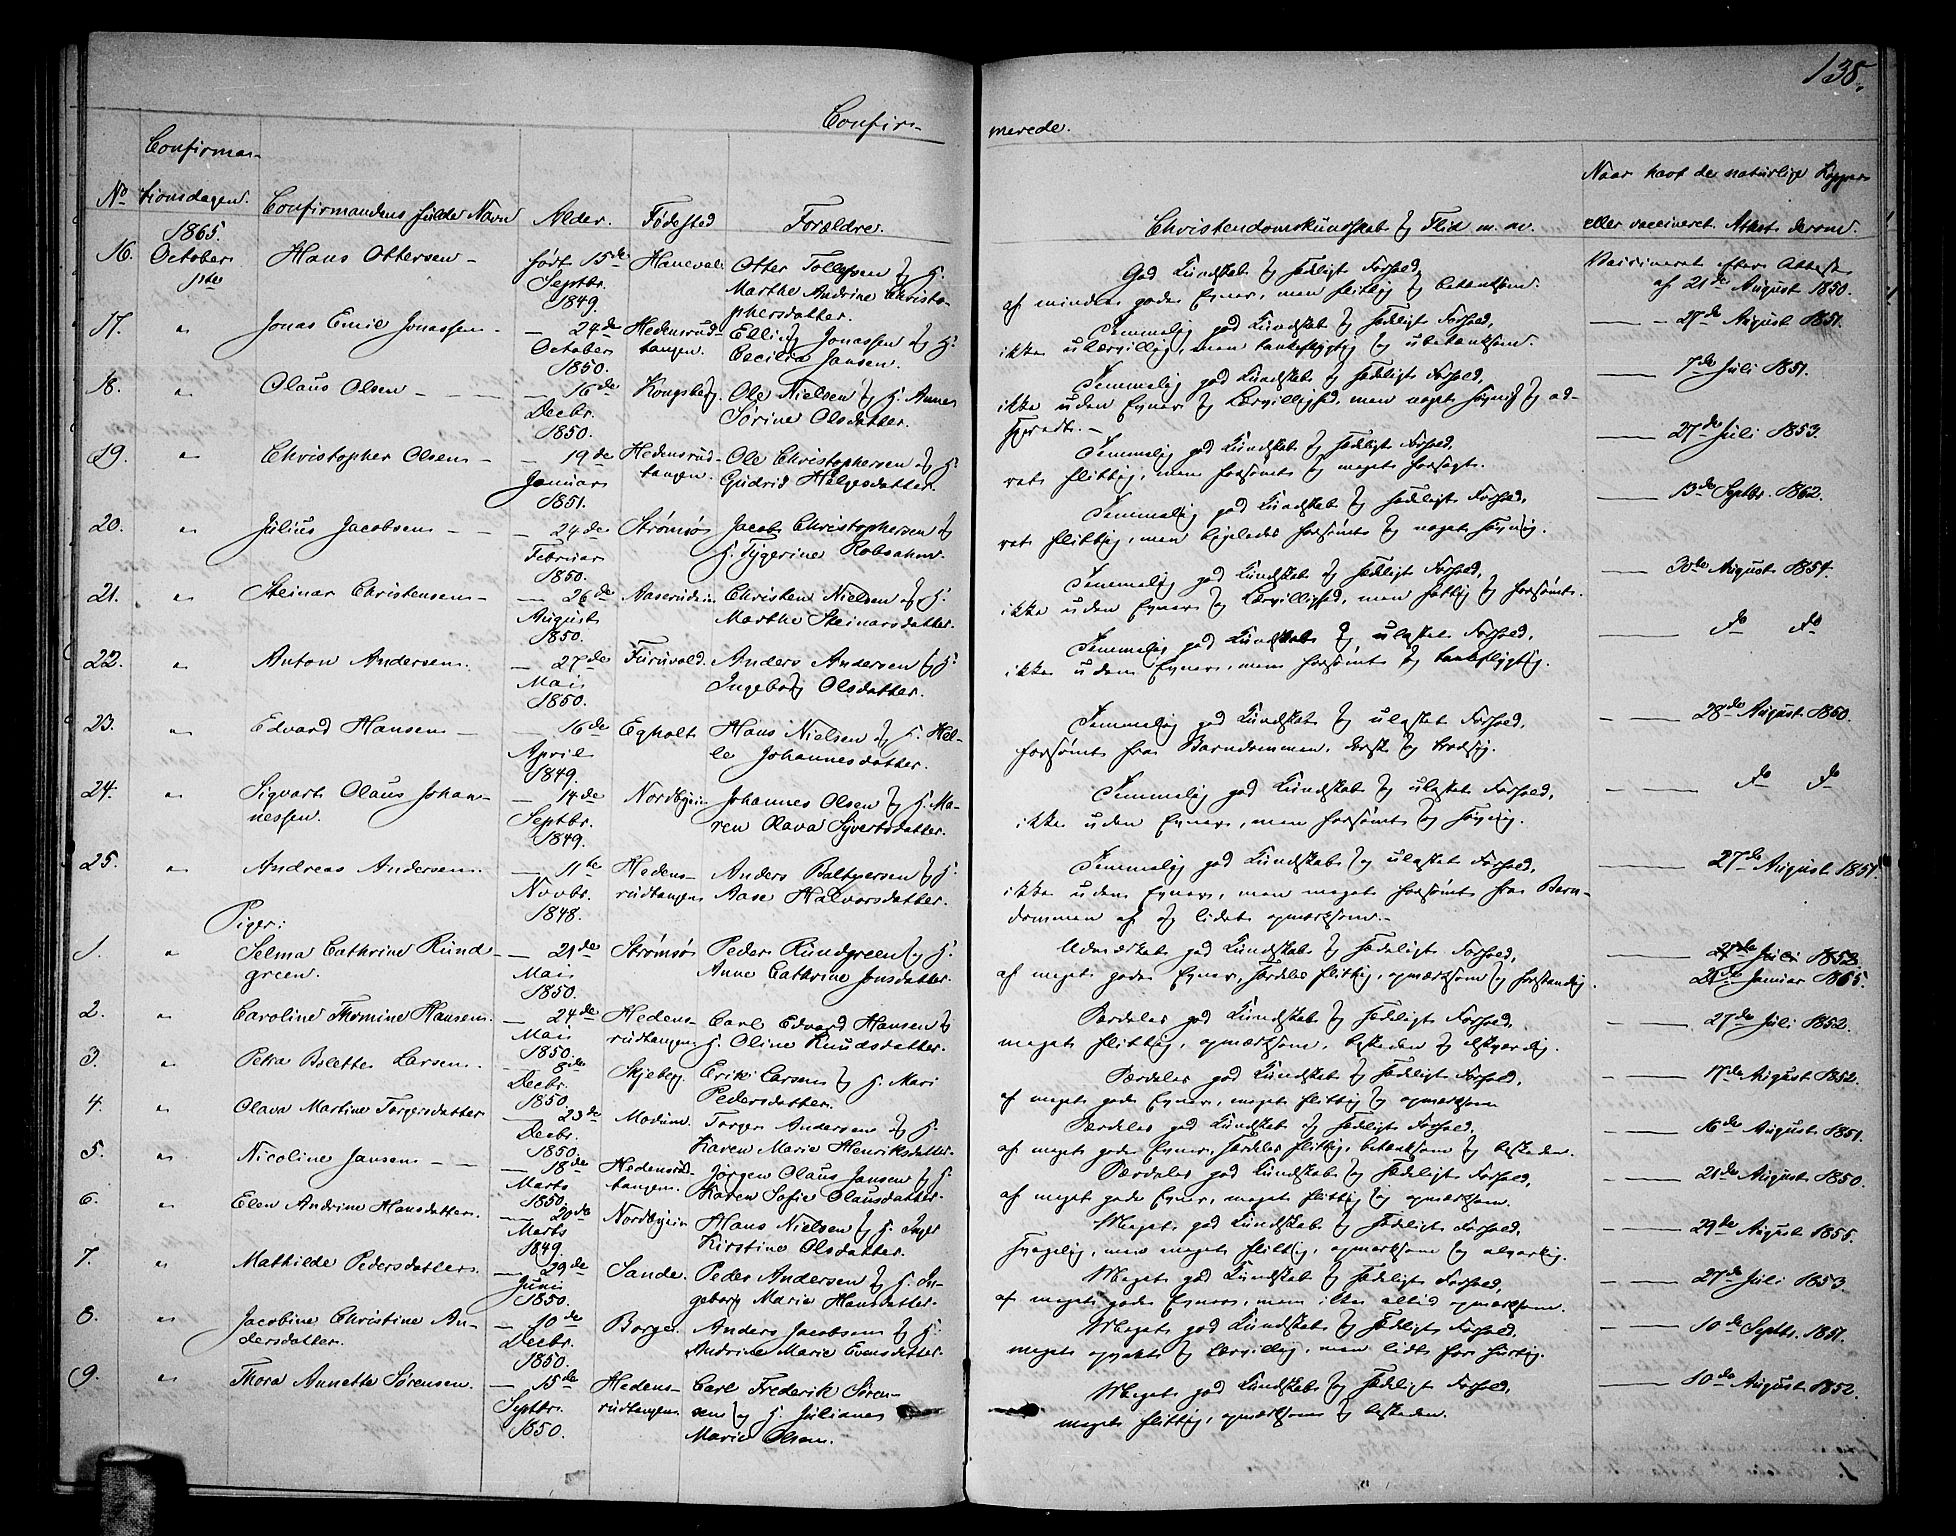 138.
Confir-
merede.
No
Confirma-
tionsdagen.
1865.
Confirmandens fulde Navn
Alder.
Fødested
Forældre.
Christendomskundskab og Flid m. m.
Naar havt de naturlige Kopper
eller vaccineret. Attest derom.
16. October Hans Ottersen - født 15de
1ste Septbr. 1849.
Otter
Marthe Andrine Christo-
phersdatter.
God Kundskab og sædeligt Forhold,
af mindre gode Evner, men flittig og betænksom.
Vaccineret efter Attest
af 21de August 1850.
17. " Jonas Emil Jonassen - 24de October 1850. Hedensrud-
tangen.
Jonassen og H.
Cecilia Jansen.
Temmelig god Kundskab og sædeligt Forhold,
ikke ulærvillig, men tankeflygtig og ubetænksom.
27de August 1851.
18. " Olaus Olsen - 16de Decbr. 1850. Kongsberg. Ole Nielsen og H. Anne
Sørine Olsdatter.
Temmelig god Kundskab og sædeligt Forhold,
ikke uden Evner og Lærvillighed, men noget
7de Juli 1851.
19. " Christopher Olsen - 19de Januar 1851. Hedensrud-
tangen. Ole Christophersen og H.
Gudrid Helgesdatter.
Temmelig god Kundskab og sædeligt Forhold,
ret flittig, men forsømt og meget forsagt.
27de Juli 1853.
20. " Julius Jacobsen - 24de Februar 1850. Strømsø Jacob Christophersen og
H. Robsahm.
Temmelig god Kundskab og sædeligt Forhold,
ret flittig, men ligeledes forsømt og noget
13de Septbr. 1862.
21. " Steinar Christensen - 26de August 1850. Christen Nielsen og H.
Marthe Steinarsdatter.
Temmelig god Kundskab og sædeligt Forhold,
ikke uden Evner og Lærvillighed, men og forsømt.
30te August 1851.
22. " Anton Andersen. - 27de Mai 1850. Furuvald. Anders Andersen og H.
Ingeborg Olsdatter.
Temmelig god Kundskab og ulastet Forhold,
ikke uden Evner, men forsømt og tankeflygtig.
do do
23. " Edvard Hansen - 16de April 1849. Egholt Hans Nielsen og H. Hel-
le Johannesdatter.
Temmelig god Kundskab og ulastet Forhold,
forsømt fra Barndommen, dorsk og
28de August 1850.
24. " Sigvart Olaus Johan-
nessen. - 14de Septbr. 1849. Nordbyeie Johannes Olsen og H. Ma-
ren Olava Syvertsdatter.
Temmelig god Kundskab og ulastet Forhold,
ikke uden Evner, men forsømt og
do do
25. " Andreas Andersen. - 11te Novbr. 1848. Hedens-
rudtangen Anders Baltzersen og H.
Aase Halvorsdatter.
Temmelig god Kundskab og ulastet Forhold,
ikke uden Evner, men meget forsømt fra Barn-
dommen af og lidet opmærksom.-
27de August 1851.
Piger:
1. " Selma Cathrine Rund-
green. - 21de Mai 1850. Strømsø Peder Rundgreen og H.
Anne Cathrine Jonsdatter.
Udmærket god Kundskab og sædeligt Forhold,
af meget gode Evner, særdeles flittig, opmærksom og forstandig.
Juli 1852
Januar 1865.
2. " Caroline Thomine Hansen. - 24de Mai 1850. Hedens-
rudtangen. Carl Edvard Hansen og
H. Oline Knudsdatter.
Særdeles god Kundskab og sædeligt Forhold,
meget flittig, opmærksom, beskeden og elskværdig.
27de Juli 1852.
3. " Petra Bolette Larsen. - 8de Decbr. 1850. Skjeberg. Erik Larsen og H. Mari
Pedersdatter.
Særdeles god Kundskab og sædeligt Forhold,
af meget gode Evner, meget flittig og opmærksom
17de August 1852.
4. " Olava Martine Torgersdatter - 23de Decbr. 1850. Modum. Torger Andersen og H.
Karen Marie Henriksdatter.
Særdeles god Kundskab og sædeligt Forhold,
af meget gode Evner, særdeles flittig, betænksom og beskeden.
16de August 1851.
5. " Nicoline Jansen - - 18de Marts 1850. Hedensrud-
tangen. Jørgen Olaus Jansen og H.
Karen Sofie Olausdatter.
Særdeles god Kundskab og sædeligt Forhold,
af meget gode Evner, meget flittig og opmærksom.
21de August 1850.
6. " Elen Andrine Hansdatter. - 20de Marts 1849. Nordbyeie Hans Nielsen og H. Inger
Kirstine Olsdatter.
Meget god Kundskab og sædeligt Forhold,
svagelig, men meget flittig, opmærksom og alvorlig.
29de August 1855.
7. " Mathilde Pedersdatter. - 29de Juni 1850. Sande. Peder Andersen og H. In-
geborg Marie Hansdatter.
Meget god Kundskab og sædeligt Forhold,
af meget gode Evner, men ikke altid opmærksom.
27de Juli 1853.
8. " Jacobine Christine An-
dersdatter. - 10de Decbr. 1850. Borge. Anders Jacobsen og H.
Andrine Marie Evensdatter.
Meget god Kundskab og sædeligt Forhold,
meget og lærvillig, men lidt for hurtig.
10de Septbr. 1851.
9. " Thora Annette Sørensen. - 15de Septbr. 1850. Hedens-
rudtangen. Carl Frederik Søren-
sen og H. Juliane
Marie Olsen.
Meget god Kundskab og sædeligt Forhold,
meget flittig, opmærksom og beskeden.
10de August 1852.